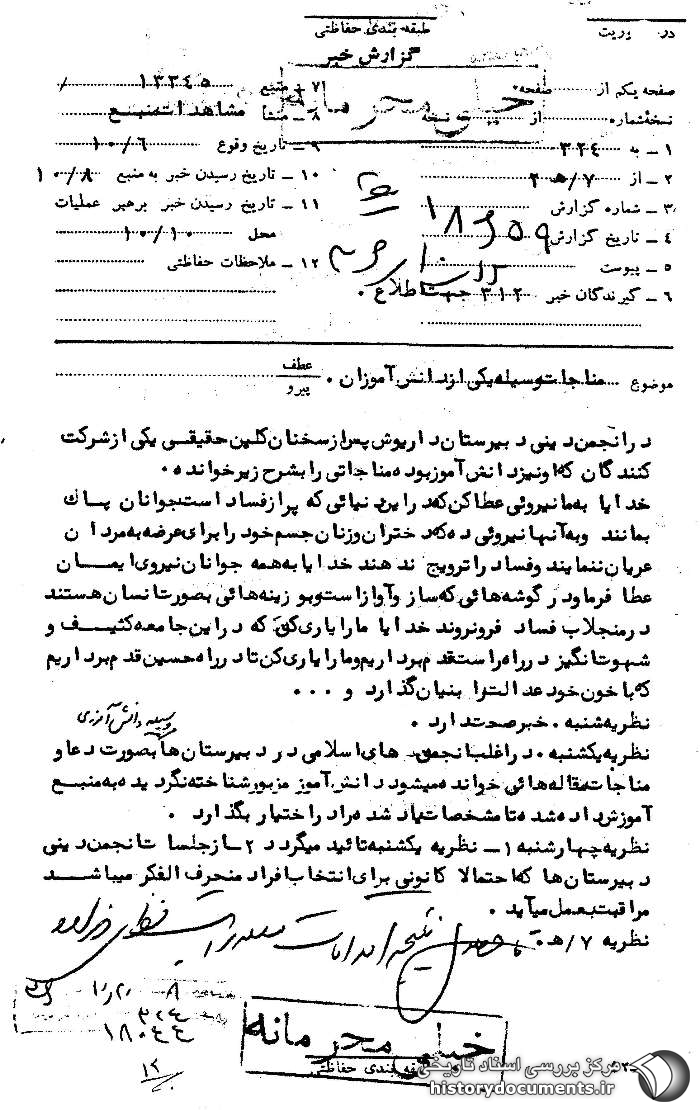 طبقه بندی حفاظتی
گزارش خبر
خیلی محرمانه
صفحه یکم از صفحه
نسخه شماره از نسخه
۱ ـ به ۳۲۴
۲ ـ از ۷/هـ ۲۰
۳ ـ شماره گزارش
۴ ـ تاریخ گزارش
۵ ـ پیوست
۶ ـ گیرندگان خبر ۳۱۲ جهت اطلاع .
۷ ـ منبع ۱۳۳۴۵
۸ ـ منشأ مشاهدات منبع
۹ ـ تاریخ وقوع ۱۰/۶
۱۰ ـ تاریخ رسیدن خبر به منبع ۱۰/۸
۱۱ ـ تاریخ رسیدن خبر برهبر عملیات
محل ۱۰/۱۰
۱۲ ـ ملاحظات حفاظتی
موضوع مناجات وسیله یکی از دانش آموزان .
عطف
پیرو
در انجمن دینی دبیرستان داریوش پس از سخنان گلین حقیقی یکی از شرکت
کنندگان که او نیز دانش آموز بوده مناجاتی را بشرح زیر خوانده .
خدایا به ما نیروئی عطا کن که در این دنیائی که پر از فساد است جوانان پاک
بمانند و به آنها نیروئی ده که دختران و زنان جسم خود را برای عرضه به مردان
عریان ننمایند و فساد را ترویج ندهند خدایا به همه جوانان نیروی ایمان
عطا فرما و در گوشه هائی که ساز و آواز است و بوزینه هائی بصورت انسان هستند
در منجلاب فساد فرو نروند خدایا ما را یاری کن که در این جامعه کثیف و
شهوت انگیز در راه راست قدم برداریم و ما را یاری کن تا در راه حسین قدم برداریم
که با خون خود عدالت را بنیان گذارد و ...
نظریه شنبه . خبر صحت دارد .
وسیله دانش آموزی
نظریه یکشنبه . در اغلب انجمن های اسلامی در دبیرستان ها بصورت دعا و
مناجات مقاله هائی خوانده میشود دانش آموز مزبور شناخته نگردیده به منبع
آموزش داده شده تا مشخصات یاد شده را در اختیار بگذارد .
نظریه چهارشنبه ۱ ـ نظریه یکشنبه تائید میگردد ۲ ـ از جلسات انجمن دینی
دبیرستان ها که احتمالا کانونی برای انتخاب افراد منحرف الفکر میباشد
مراقبت بعمل میآید .
نظریه ۷/هـ .
۳۲۴
۱۸۰۴۴
۱۲
خیلی محرمانه
طبقه بندی حفاظتی
مرکز بررسی اسناد تاریخی
historydocuments.ir